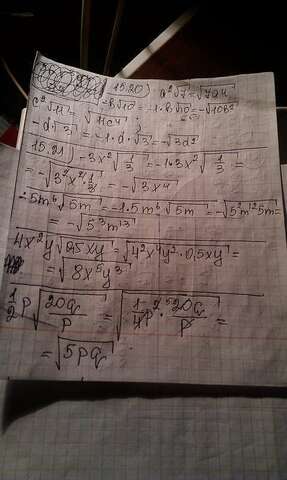 15.20) a²√7 = √7a⁴
c²√11 = √11c⁴; -b√10 = -1·b√10 = -√10b²
-d√3 = -1·d·√3 = -√3d²
15.21) -3x²√1/3 = -1·3x²√1/3 =
= -√3²x²·1/3 = -√3x⁴
-5m⁶√5m = -1·5m⁶√5m = -√5²m¹²5m =
= -√5³m¹³
4x²y√0,5xy = √4²x⁴y²·0,5xy =
= √8x⁵y³
1/2p√20q/p = √1/4p²·20q/p =
= √5pq